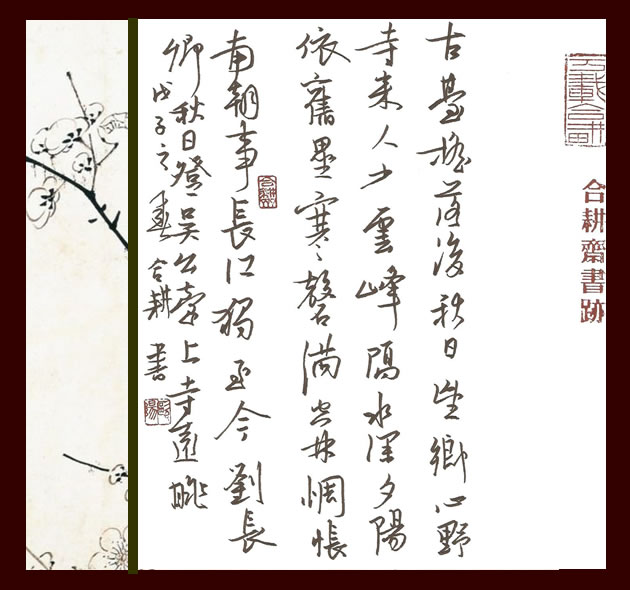 合耕齋書跡
古臺搖落後秋日望鄉心野
寺来人少雲峰隔水深夕陽
依舊壘寒磬满空林惆悵
南朝事長江獨至今劉長
卿秋日登吴公臺上寺遠眺
戊子之春合耕書